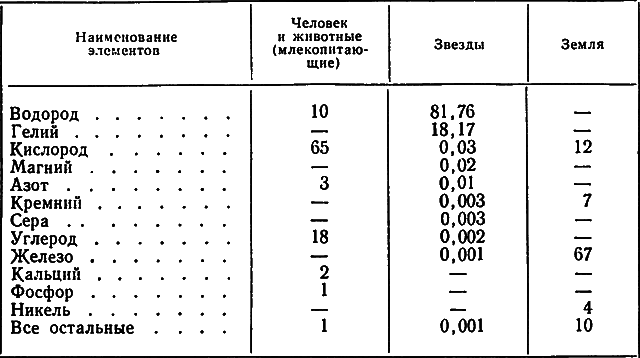 Наименование элементов | Человек и животные (млекопитаю- щие) | Звезды | Земля
Водород . . . . . . . 10 81,76 —
Гелий . . . . . . . . — 18,17 —
Кислород . . . . . . 65 0,03 12
Магний . . . . . . . — 0,02 —
Азот . . . . . . . . 3 0,01 —
Кремний . . . . . . . — 0,003 7
Сера . . . . . . . . — 0,003 —
Углерод . . . . . . . 18 0,002 —
Железо . . . . . . . — 0,001 67
Кальций . . . . . . . 2 — —
Фосфор . . . . . . . 1 — —
Никель . . . . . . . — — 4
Все остальные . . . . 1 0,001 10